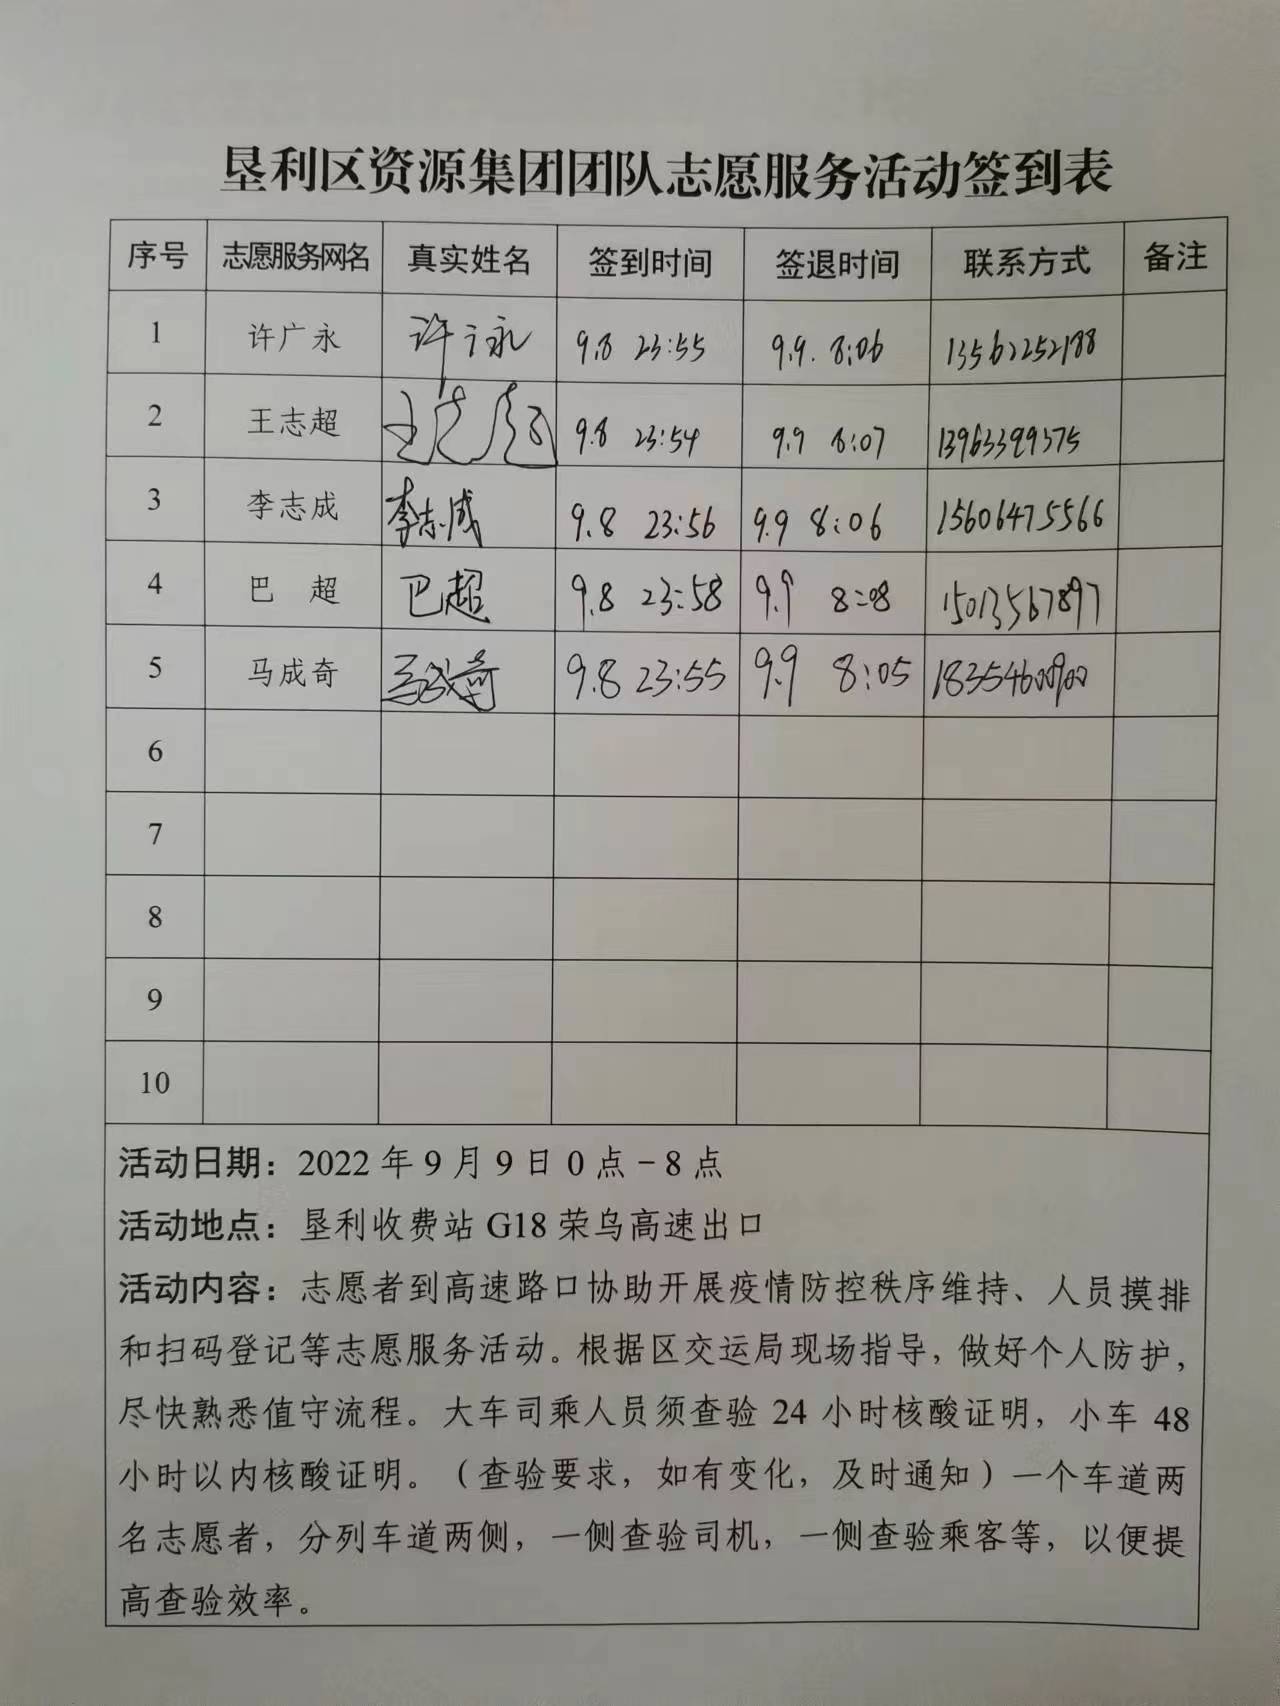 垦利区资源集团团队志愿服务活动签到表
序号 志愿服务网名 真实姓名 签到时间 签退时间 联系方式 备注
1 许广永 许广永 9.8 23:55 9.9. 8:06 13562252188
2 王志超 王志超 9.8 23:54 9.9 8:07 13963399375
3 李志成 李志成 9.8 23:56 9.9 8:06 15606475566
4 巴 超 巴超 9.8 23:58 9.9 8:08 15013567897
5 马成奇 马成奇 9.8 23:55 9.9 8:05
6
7
8
9
10
活动日期：2022 年 9 月 9 日 0 点－8 点
活动地点：垦利收费站 G18 荣乌高速出口
活动内容：志愿者到高速路口协助开展疫情防控秩序维持、人员摸排
和扫码登记等志愿服务活动。根据区交运局现场指导，做好个人防护，
尽快熟悉值守流程。大车司乘人员须查验 24 小时核酸证明，小车 48
小时以内核酸证明。（查验要求，如有变化，及时通知）一个车道两
名志愿者，分列车道两侧，一侧查验司机，一侧查验乘客等，以便提
高查验效率。